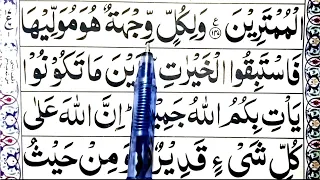 الْمُمْتَرِيْنَ ﴿۱۴۷﴾ ع وَلِكُلٍّ وِّجْهَةٌ هُوَ مُوَلِّيْهَا
فَاسْتَبِقُوا الْخَيْرٰتِ يْنَ مَا تَكُوْنُوْا
يَاْتِ بِكُمُ اللّٰهُ جَمِيْ اِنَّ اللّٰهَ عَلٰى
كُلِّ شَيْءٍ قَدِيْرٌ وَمِنْ حَيْثُ